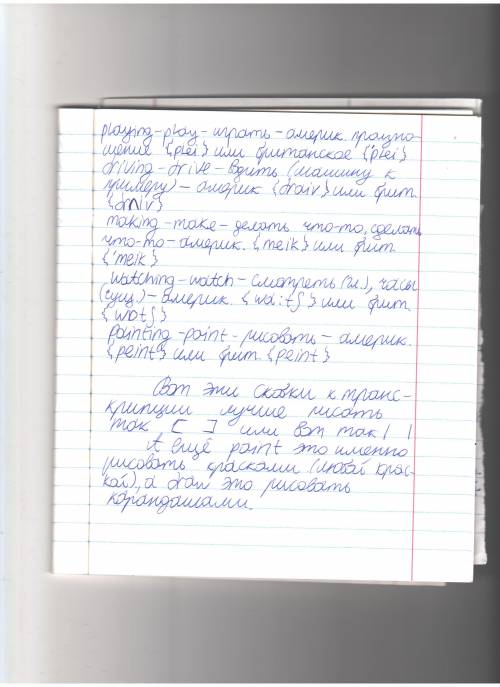 playing-play-играть-америк. произно-
шение {pleı} или британское {'pleı}
driving-drive-водить (машину к
примеру)-америк {draıv} или брит.
{drʌıv}
making-make-делать что-то, сделать
что-то-америк. {meık} или брит.
{'meık}
watching-watch-смотреть (гл.), часы
(сущ.)-америк. {wɑ:tʃ} или брит.
{wɒtʃ}
painting-paint-рисовать-америк.
{peınt} или брит. {peınt}
Вот эти скобки к транс-
крипции лучше писать
так [ ] или вот так / /
А ещё paint это именно
рисовать красками (любой крас-
кой), а draw это рисовать
карандашами.